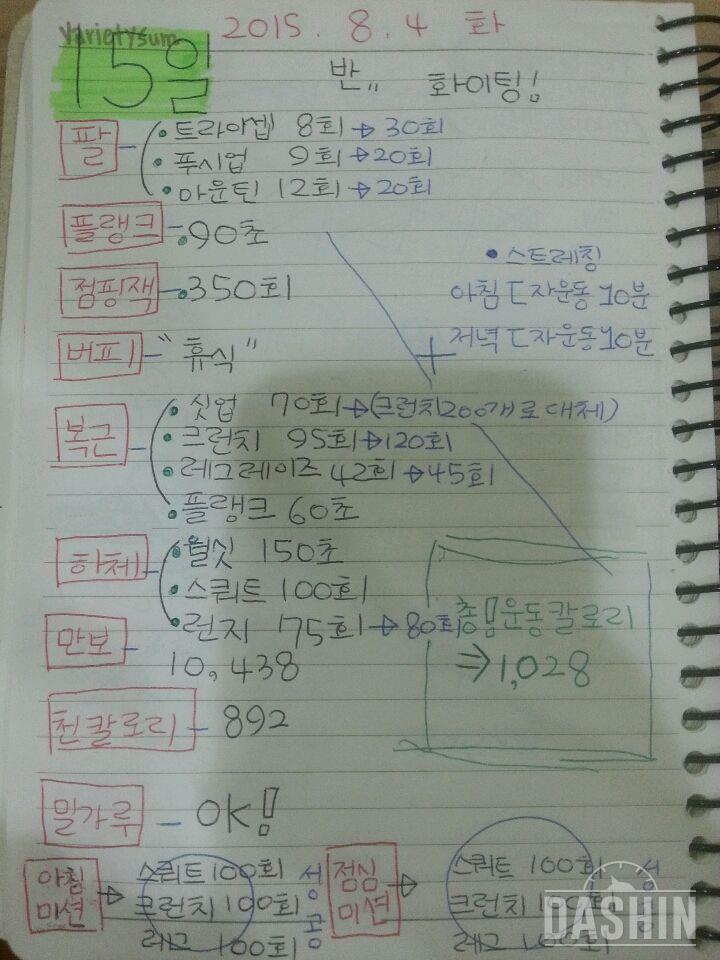 Varietysum 2015. 8. 4 화
15일 반,, 화이팅!
팔 - • 트라이셉 8회 → 30회
• 푸시업 9회 → 20회
• 마운틴 12회 → 20회
플랭크 - • 90초
• 스트레칭
점핑잭 - • 350회 아침 ㄷ자운동 10분
+ 저녁 ㄷ자운동 10분
버피 - "휴식"
복근 - • 싯업 70회 → (크런치 200개로 대체)
• 크런치 95회 → 120회
• 레그레이즈 42회 → 45회
• 플랭크 60초
하체 - • 월싯 150초
• 스쿼트 100회
• 런지 75회 → 80회
총 운동칼로리
만보 - 10,438
⇒ 1,028
천칼로리 - 892
밀가루 - OK!
아침 미션 → 스쿼트 100회
크런치 100회
레그 100회
성공
점심 미션 → 스쿼트 100회
크런치 100회
레그 100회
성공
DASHIN